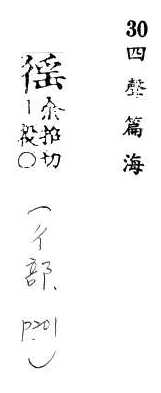 30 四聲篇海
徭 余招切
ー役○
(彳部 p201)